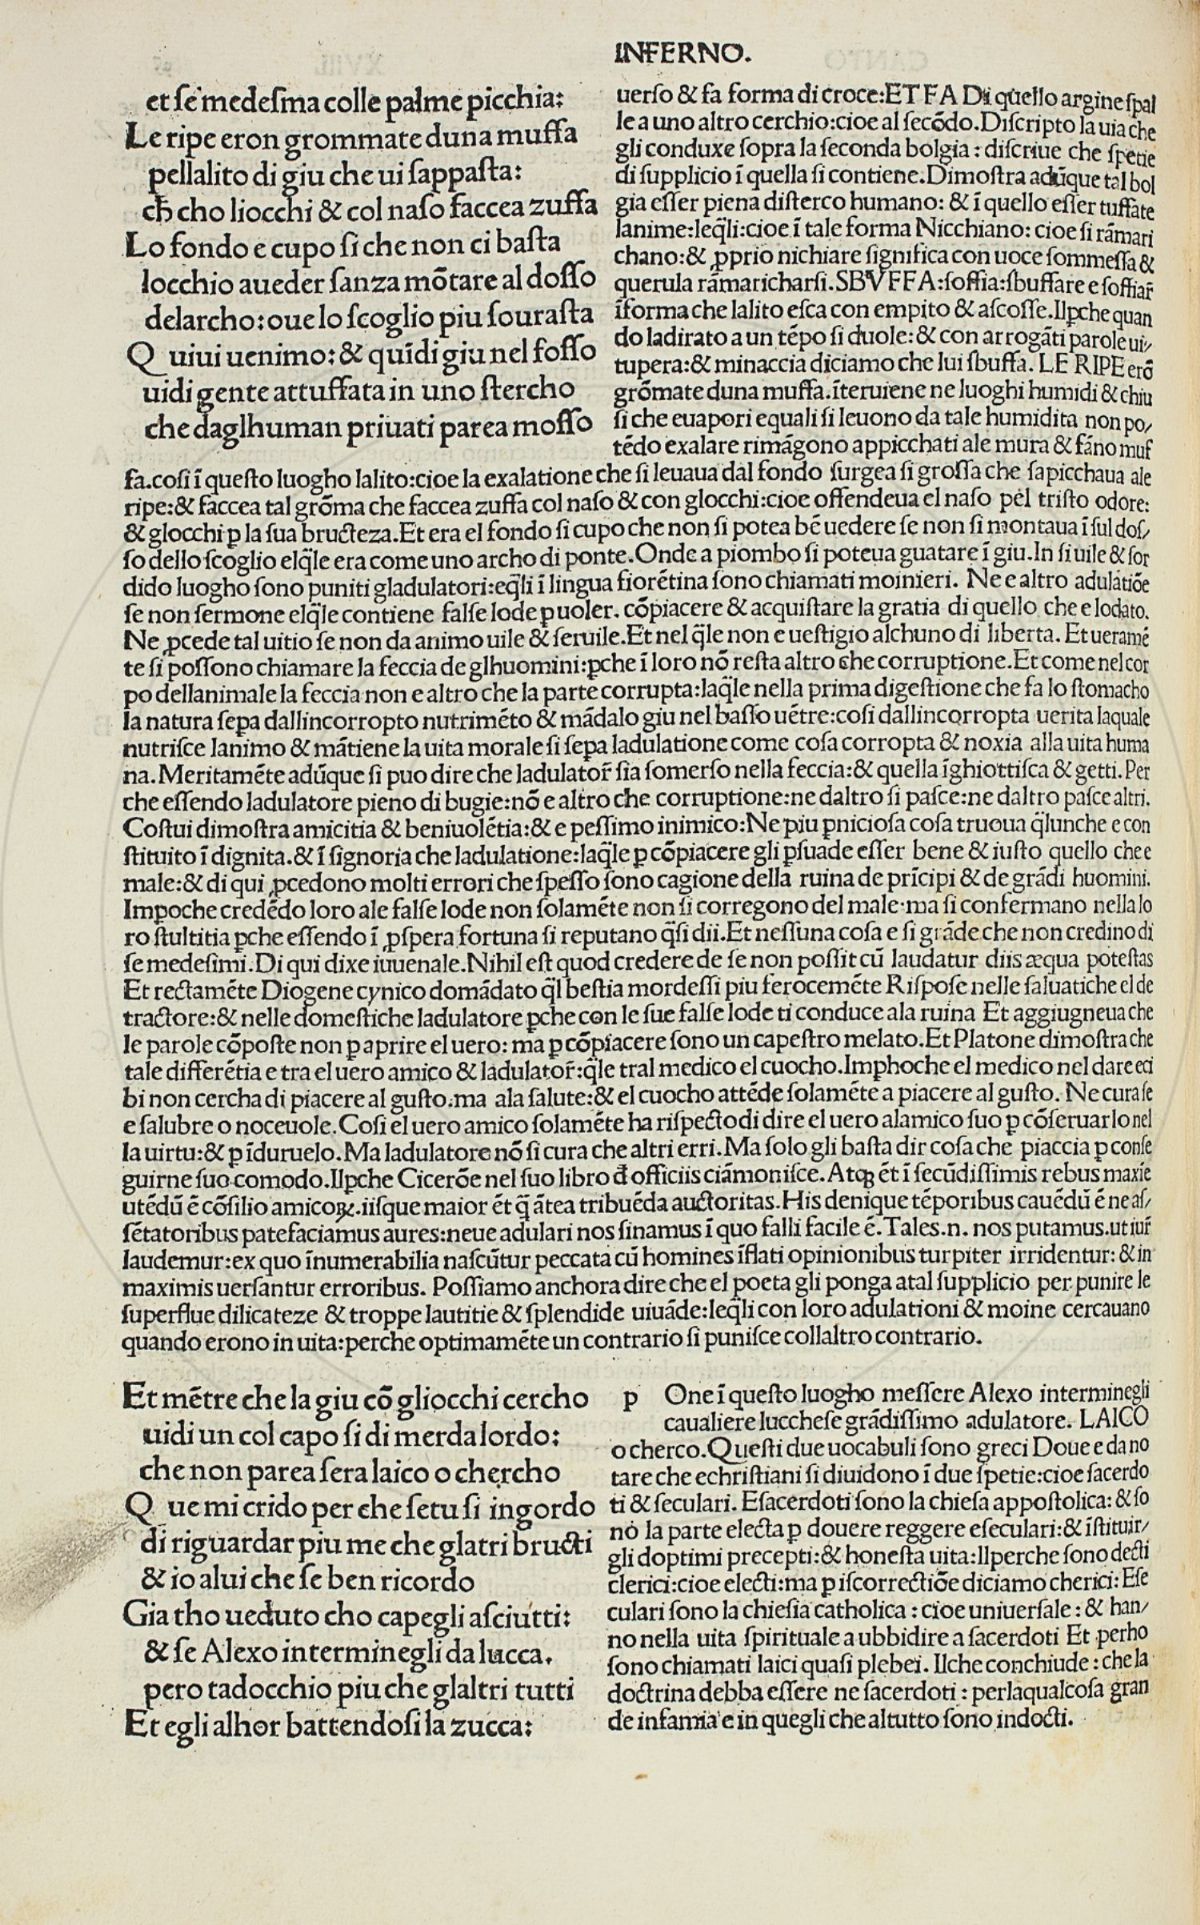 INFERNO.
et se medesma colle palme picchia:
Le ripe eron grommate duna muffa
pellalito di giu che ui sappasta:
cħ cho liocchi & col naso faccea zuffa
Lo fondo e cupo si che non ci basta
locchio aueder sanza mōtare al dosso
delarcho: oue lo scoglio piu sourasta
Q uiui uenimo: & quīdi giu nel fosso
uidi gente attuffata in uno stercho
che daglhuman priuati parea mosso
uerso & fa forma di croce: ET FA Di quello argine spal
le a uno altro cerchio: cioe al secōdo. Discripto la uia che
gli conduxe sopra la seconda bolgia: discriue che spetie
di supplicio ī quella si contiene. Dimostra adūque tal bol
gia esser piena disterco humano: & ī quello esser tuffate
lanime: leq̄li: cioe ī tale forma Nicchiano: cioe si rāmari
chano: & ꝓprio nichiare significa con uoce sommessa &
querula rāmaricharsi. SBVFFA: soffia: sbuffare e soffiar̄
īforma che lalito esca con empito & ascosse. Ilꝑche quan
do ladirato a un tēpo si duole: & con arrogāti parole ui/
tupera: & minaccia diciamo che lui sbuffa. LE RIPE erō
grōmate duna muffa. īteruiene ne luoghi humidi & chiu
si che euapori equali si leuono da tale humidita non po/
tēdo exalare rimāgono appicchati ale mura & fāno muf
fa. cosi ī questo luogho lalito: cioe la exalatione che si leuaua dal fondo surgea si grossa che sapicchaua ale
ripe: & faccea tal grōma che faccea zuffa col naso & con glocchi: cioe offendeua el naso pel tristo odore:
& glocchi ꝑ la sua bructeza. Et era el fondo si cupo che non si potea bē uedere se non si montaua ī sul dos/
so dello scoglio elq̄le era come uno archo di ponte. Onde a piombo si poteua guatare ī giu. In si uile & sor
dido luogho sono puniti gladulatori: eq̄li ī lingua fiorētina sono chiamati moinieri. Ne e altro adulatiōe
se non sermone elq̄le contiene false lode ꝑ uoler. cōpiacere & acquistare la gratia di quello che e lodato.
Ne ꝓcede tal uitio se non da animo uile & seruile. Et nel q̄le non e uestigio alchuno di liberta. Et ueramē
te si possono chiamare la feccia de glhuomini: ꝑche ī loro nō resta altro che corruptione. Et come nel cor
po dellanimale la feccia non e altro che la parte corrupta: laq̄le nella prima digestione che fa lo stomacho
la natura sepa dallincorropto nutrimēto & mādalo giu nel basso uētre: cosi dallincorropta uerita laquale
nutrisce lanimo & mātiene la uita morale si sepa ladulatione come cosa corropta & noxia alla uita huma
na. Meritamēte adūque si puo dire che ladulator̄ sia somerso nella feccia: & quella īghiottisca & getti. Per
che essendo ladulatore pieno di bugie: nō e altro che corruptione: ne daltro si pasce: ne daltro pasce altri.
Costui dimostra amicitia & beniuolētia: & e pessimo inimico: Ne piu ꝑniciosa cosa truoua q̄lunche e con
stituito ī dignita. & ī signoria che ladulatione: laq̄le ꝑ cōpiacere gli ꝑsuade esser bene & iusto quello che e
male: & di qui ꝓcedono molti errori che spesso sono cagione della ruina de prīcipi & de grādi huomini.
Impoche credēdo loro ale false lode non solamēte non si corregono del male. ma si confermano nella lo
ro stultitia ꝑche essendo ī ꝓspera fortuna si reputano q̄si dii. Et nessuna cosa e si grāde che non credino di
se medesimi. Di qui dixe iuuenale. Nihil est quod credere de se non possit cū laudatur diis æqua potestas
Et rectamēte Diogene cynico domādato q̄l bestia mordessi piu ferocemēte Rispose nelle saluatiche el de
tractore: & nelle domestiche ladulatore ꝑche con le sue false lode ti conduce ala ruina Et aggiugneua che
le parole cōposte non ꝑ aprire el uero: ma ꝑ cōpiacere sono un capestro melato. Et Platone dimostra che
tale differētia e tra el uero amico & ladulator̄: q̄le tral medico el cuocho. Imꝑhoche el medico nel dare eci
bi non cercha di piacere al gusto: ma ala salute: & el cuocho attēde solamēte a piacere al gusto. Ne cura se
e salubre o noceuole. Cosi el uero amico solamēte ha rispecto di dire el uero alamico suo ꝑ cōseruarlo nel
la uirtu: & ꝑ īduruelo. Ma ladulatore nō si cura che altri erri. Ma solo gli basta dir cosa che piaccia ꝑ conse
guirne suo comodo. Ilꝑche Cicerōe nel suo libro đ officiis ciāmonisce. Atqꝫ ēt ī secūdissimis rebus maxīe
utēdū ē cōsilio amicoꝝ. iisque maior ēt q̄ ātea tribuēda auctoritas. His denique tēporibus cauēdū ē ne as/
sētatoribus patefaciamus aures: neue adulari nos sinamus ī quo falli facile ē. Tales. n. nos putamus. ut iur̄
laudemur: ex quo īnumerabilia nascūtur peccata cū homines īflati opinionibus turpiter irridentur: & in
maximis uersantur erroribus. Possiamo anchora dire che el poeta gli ponga atal supplicio per punire le
superflue dilicateze & troppe lautitie & splendide uiuāde: leq̄li con loro adulationi & moine cercauano
quando erono in uita: perche optimamēte un contrario si punisce collaltro contrario.
Et mētre che la giu cō gliocchi cercho
uidi un col capo si di merda lordo:
che non parea sera laico o chercho
Q ue mi crido per che setu si ingordo
di riguardar piu me che glatri bructi
& io alui che se ben ricordo
Gia tho ueduto cho capegli asciutti:
& se Alexo interminegli da lucca.
pero tadocchio piu che glaltri tutti
Et egli alhor battendosi la zucca:
p One ī questo luogho messere Alexo interminegli
caualiere lucchese grādissimo adulatore. LAICO
o cherco. Questi due uocabuli sono greci Doue e da no
tare che echristiani si diuidono ī due spetie: cioe sacerdo
ti & seculari. Esacerdoti sono la chiesa appostolica: & so
no la parte electa ꝑ douere reggere eseculari: & īstituir/
gli doptimi precepti: & honesta uita: Ilperche sono decti
clerici: cioe electi: ma ꝑ iscorrectiōe diciamo cherici: Ese
culari sono la chiesia catholica: cioe uniuersale: & han/
no nella uita spirituale a ubbidire a sacerdoti Et perho
sono chiamati laici quasi plebei. Ilche conchiude: che la
doctrina debba essere ne sacerdoti: perlaqualcosa gran
de infamia e in quegli che altutto sono indocti.